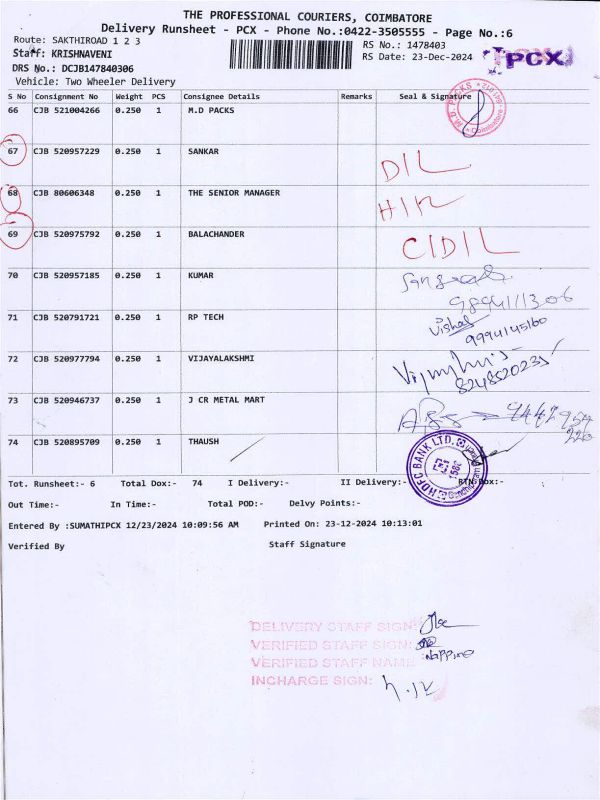 THE PROFESSIONAL COURIERS, COIMBATORE
Delivery Runsheet - PCX - Phone No.:0422-3505555 - Page No.:6
Route: SAKTHIROAD 1 2 3
RS No.: 1478403
Staff: KRISHNAVENI
RS Date: 23-Dec-2024
PCX
DRS No.: DCJB147840306
Vehicle: Two Wheeler Delivery
S No Consignment No Weight PCS Consignee Details Remarks Seal & Signature
66 CJB 521004266 0.250 1 M.D PACKS
M.D. PACKS 641 012 Coimbatore
67 CJB 520957229 0.250 1 SANKAR D/L
68 CJB 80606348 0.250 1 THE SENIOR MANAGER
69 CJB 520975792 0.250 1 BALACHANDER C/D/L
70 CJB 520957185 0.250 1 KUMAR
9894111306
71 CJB 520791721 0.250 1 RP TECH Vishal
9994145160
72 CJB 520977794 0.250 1 VIJAYALAKSHMI
8248520235
73 CJB 520946737 0.250 1 J CR METAL MART 9442 954
220
74 CJB 520895709 0.250 1 THAUSH
HDFC BANK LTD.
Tot. Runsheet:- 6 Total Dox:- 74 I Delivery:- II Delivery:- RTN Dox:-
Out Time:- In Time:- Total POD:- Delvy Points:-
Entered By :SUMATHIPCX 12/23/2024 10:09:56 AM Printed On: 23-12-2024 10:13:01
Verified By Staff Signature
DELIVERY STAFF SIGN:
VERIFIED STAFF SIGN:
VERIFIED STAFF NAME
INCHARGE SIGN: